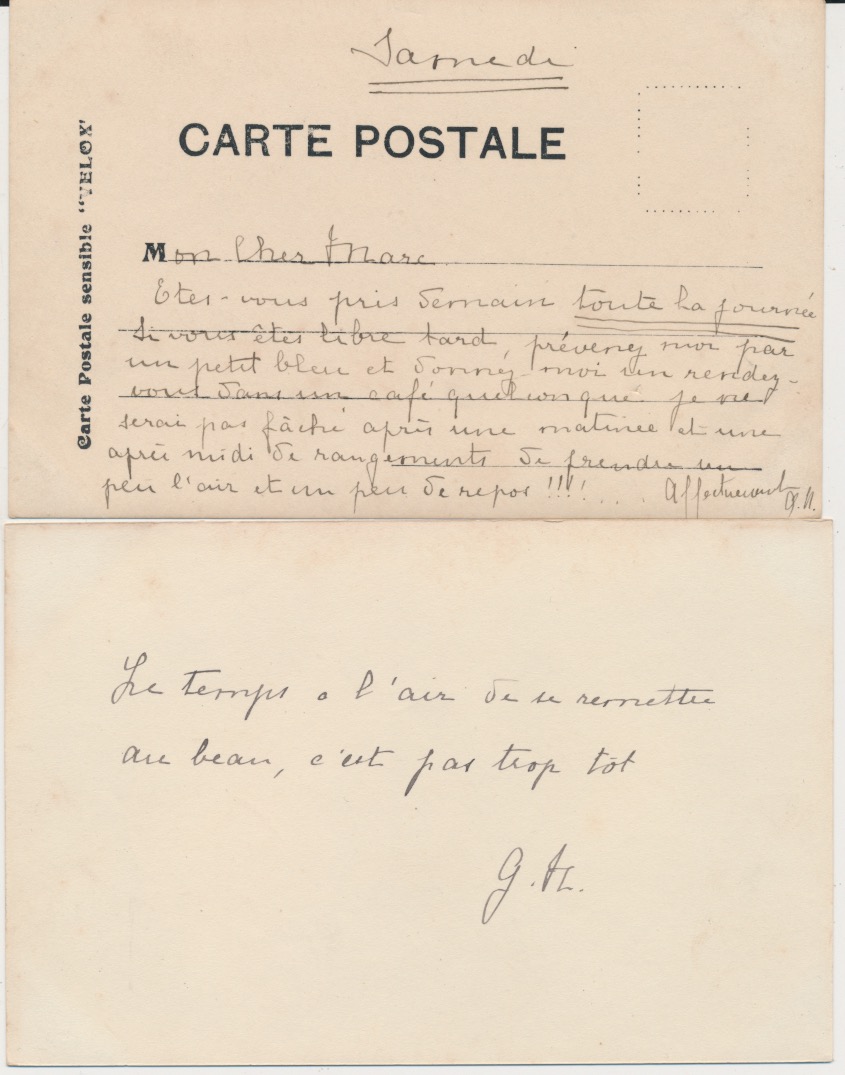 Samedi
CARTE POSTALE
Carte Postale sensible "VELOX"
Mon Cher Marc
Etes-vous pris demain toute la journée
Si vous êtes libre tard, prévenez moi par
un petit bleu et donnez-moi un rendez-
vous dans un café quelconque. je ne
serai pas fâché après une matinée et une
après midi de rangements de prendre un
peu l'air et un peu de repos !!!! . . . Affectueusement
G. H.
Le temps a l'air de se remettre
au beau, c'est pas trop tôt
G. H.